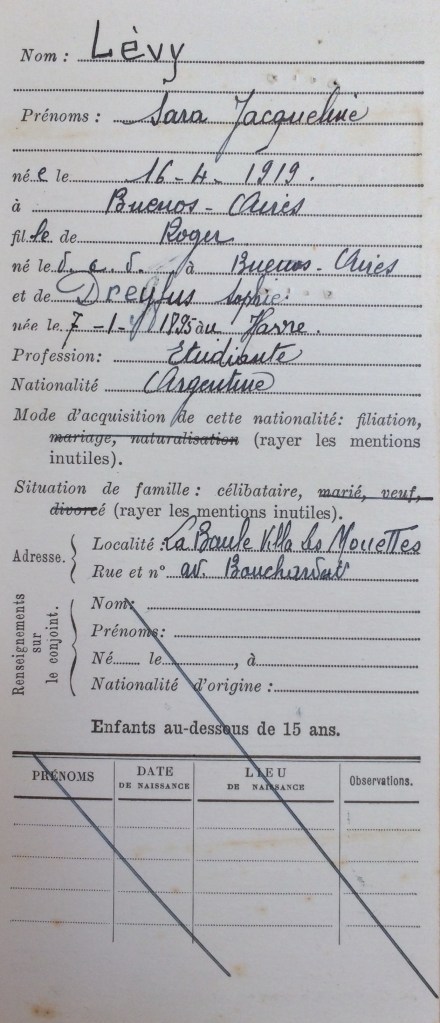 Nom : Lèvy
Prénoms : Sara Jacqueline
née le 16-4-1919.
à Buenos-Aires
fille de Roger
né le d.c.d. à Buenos-Aires
et de Dreyfus Sophie
née le 7-1-1895 au Havre.
Profession: Etudiante
Nationalité Argentine
Mode d'acquisition de cette nationalité: filiation,
mariage, naturalisation (rayer les mentions
inutiles).
Situation de famille : célibataire, marié, veuf,
divorcé (rayer les mentions inutiles).
Adresse. Localité : La Baule Villa les Mouettes
Rue et n° av.
Renseignements sur le conjoint.
Nom:
Prénoms:
Né...... le................, à
Nationalité d'origine :
Enfants au-dessous de 15 ans.
PRÉNOMS DATE DE NAISSANCE LIEU DE NAISSANCE Observations.